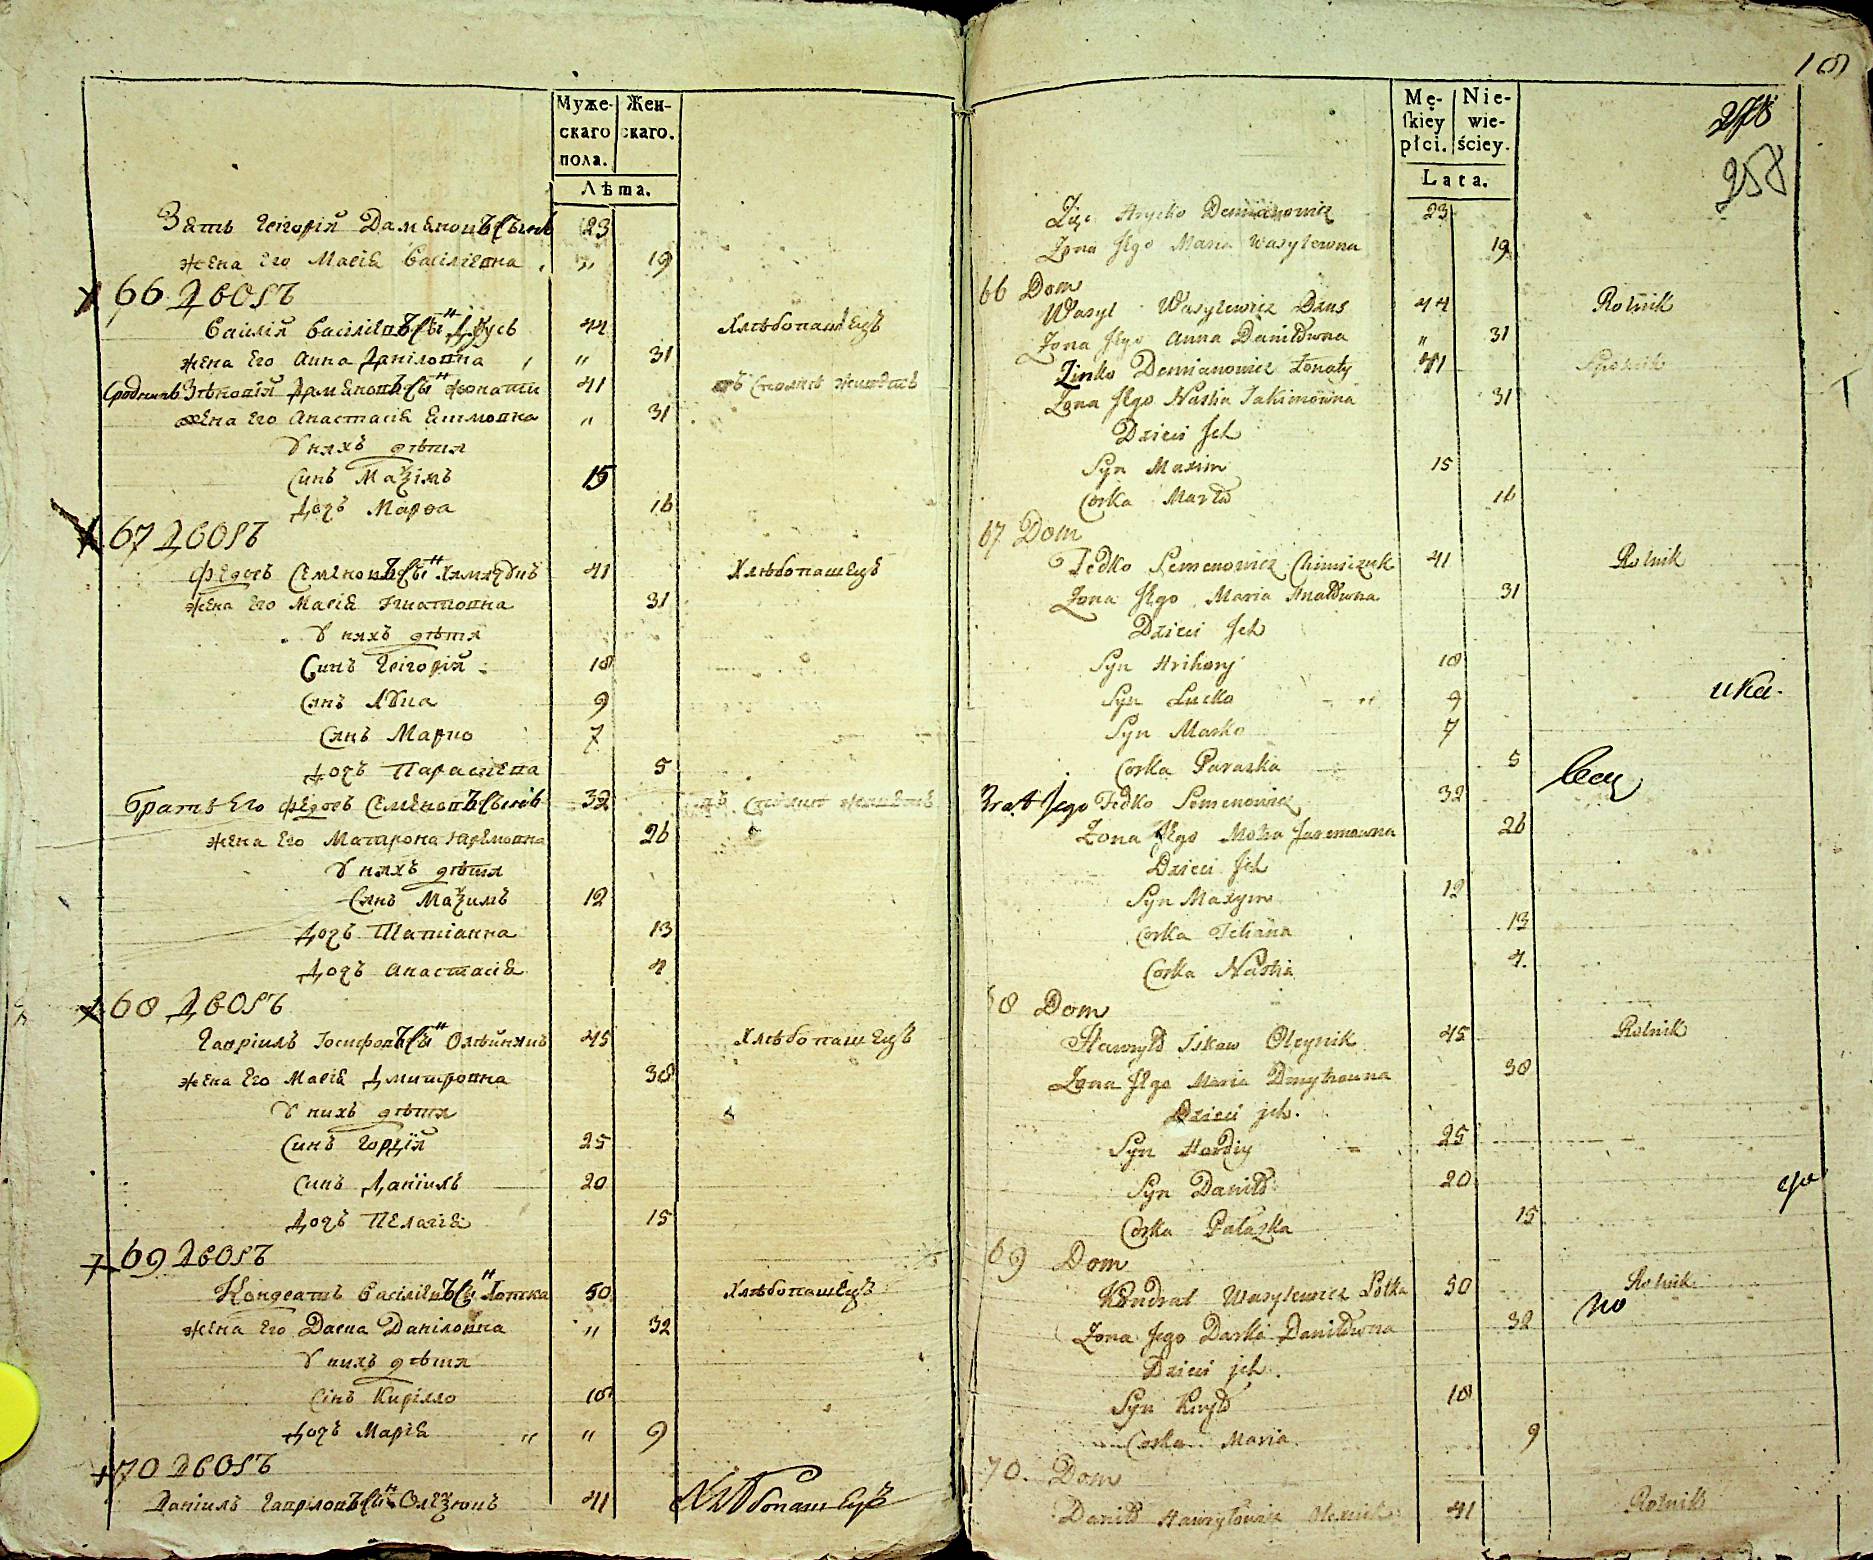 Муже-
скаго
пола.
Жен-
скаго.
Лѣта.
Зять Григорій Дамяновъ Сынъ 23
жена Его Марія Василіевна „ 19
66 Дворъ
Василій Василіевъ Сынъ Дзусь 44 Хлѣбопашецъ
жена Его Анна Даніловна „ 31
Сродникъ Зѣновій Дамяновъ Сынъ 41
жена Его Анастасія Якимовна „ 31
У нихъ дѣтя
Синъ Маѯімъ 15
Дочъ Марѳа 16
67 Дворъ
Федоръ Семеновъ Сынъ 41 Хлѣбопашецъ
жена Его Марія Игнатовна 31
У нихъ дѣтя
Синъ Григорій 18
Синъ Лука 9
Синъ Марко 7
Дочъ Параскева 5
Братъ Его Федоръ Семеновъ Сынъ 32
жена Его Матрона Яремовна 26
У нихъ дѣтя
Синъ Маѯимъ 12
Дочъ Татіанна 13
Дочъ Анастасія 4
68 Дворъ
Гавріилъ Іосифовъ Сынъ Олѣйникъ 45 Хлѣбопашецъ
жена Его Марія Дмитровна 38
У нихъ дѣтя
Синъ Гордій 25
Синъ Даніилъ 20
Дочъ Пелагія 15
69 Дворъ
Кондратъ Василіевъ Сынъ Лотка 50 Хлѣбопашецъ
жена Его Дарья Данiловна „ 32
У нихъ дѣтя
Сінъ Кирілло 18
Дочъ Марія „ „ 9
70 Дворъ
Даніилъ Гавріловъ Сынъ 41 Хлѣбопашецъ
18
258
Mę-
ſkiey
płci.
Nie-
wie-
ściey.
Lata.
Zięć Hrycko Demianowicz 23
Żona Jego Maria Wasylewna 19
66 Dom
Wasyl Wasylewicz Dzus 44 Rolnik
Żona Jego Anna Daniłowna „ 31
Zinko Demianowicz 41
Żona Jego Nastia Jakimowna 31
Dzieci Ich
Syn Maxim 15
Corka Marta 16
67 Dom
Fedko Semenowicz 41 Rolnik
Żona Jego Maria 31
Dzieci Ich
Syn Hrihory 18
Syn Lucko 9
Syn Marko 7
Corka Paraska 5
Brat Jego Fedko Semenowicz 32
Żona Jego Motra Jaremowna 26
Dzieci Ich
Syn Maxym 12
Corka Tetiana 13
Corka Nastia 4
68 Dom
Hawryło Oleynik 45 Rolnik
Żona Jego Maria Dmytrowna 38
Dzieci ich.
Syn Hordiy 25
Syn Daniło 20
Corka Palaszka 15
69 Dom
Kondrat Wasylewicz Łotka 50 Rolnik
no
Żona Jego Darka Daniłowna 32
Dzieci ich.
Syn Kiryło 18
Corka Maria 9
70. Dom
Daniło Hawryłowicz 41 Rolnik